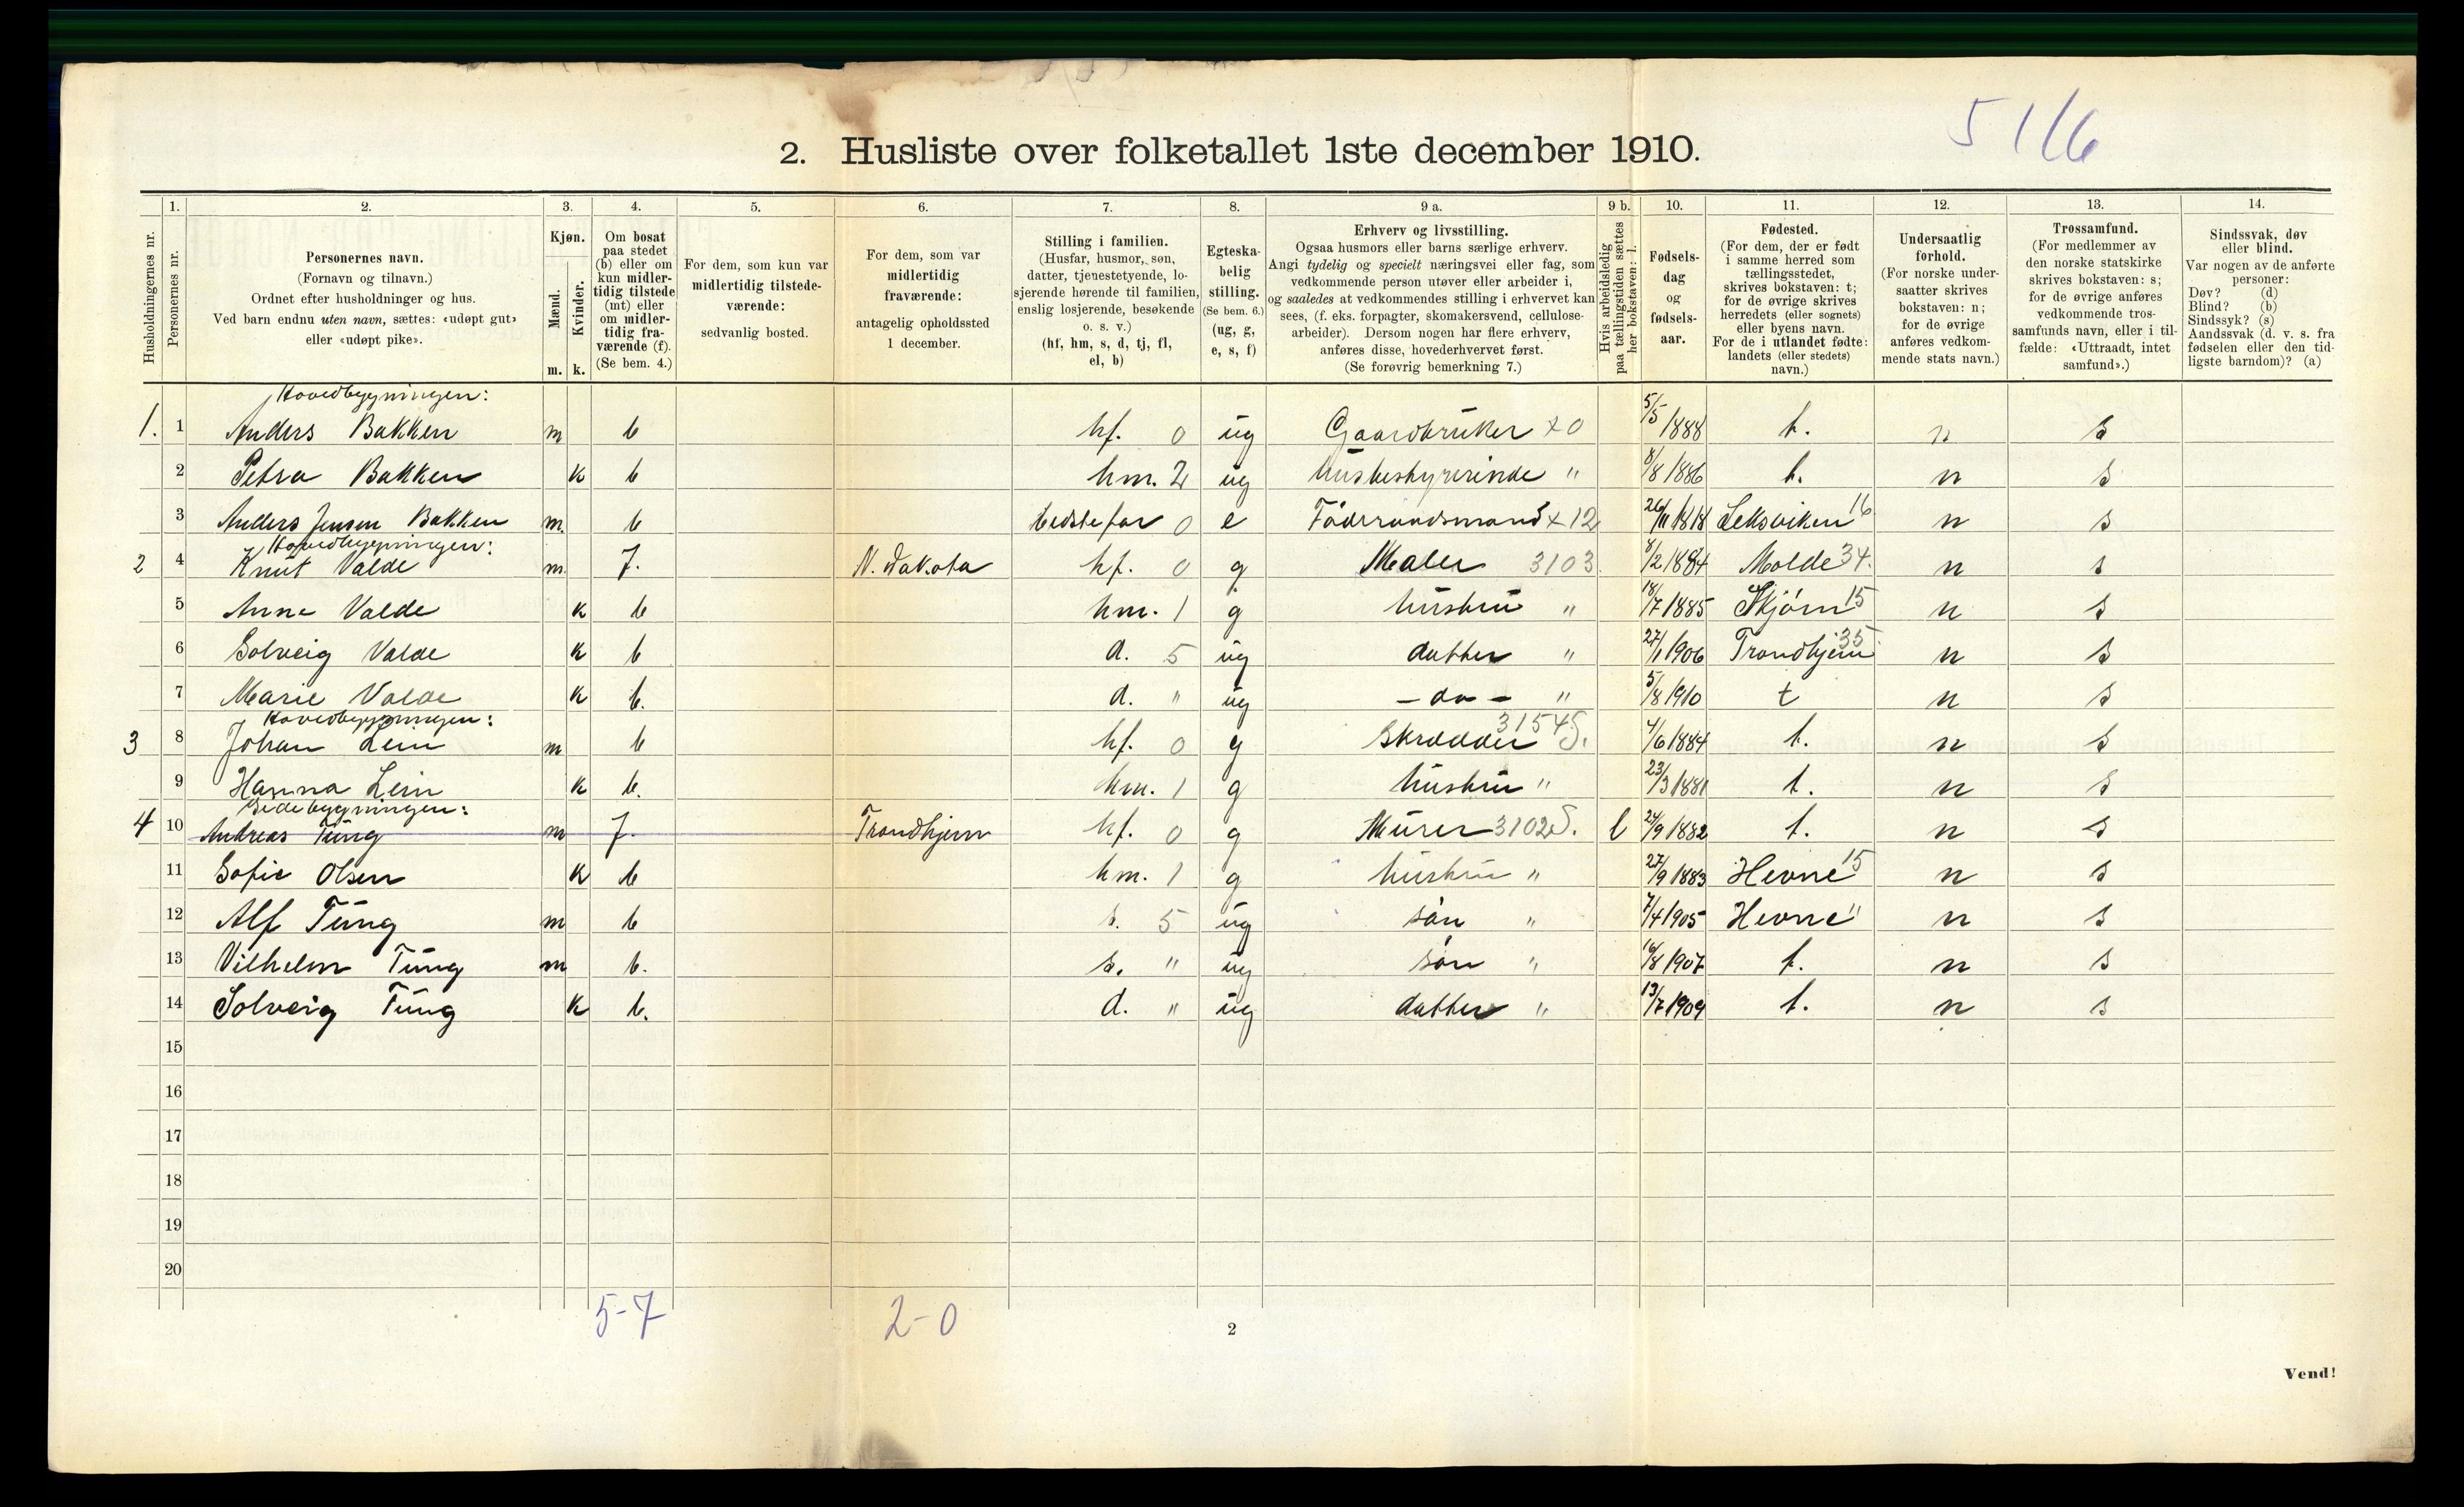 51/6
2. Husliste over folketallet 1ste december 1910.
Husholdningernes nr.
1. Personernes nr.
2. Personernes navn.
(Fornavn og tilnavn.)
Ordnet efter husholdninger og hus.
Ved barn endnu uten navn, sættes: «udøpt gut»
eller «udøpt pike».
3. Kjøn.
Mænd. m.
Kvinder. k.
4. Om bosat
paa stedet
(b) eller om
kun midler-
tidig tilstede
(mt) eller
om midler-
tidig fra-
værende (f).
(Se bem. 4.)
5. For dem, som kun var
midlertidig tilstede-
værende:
sedvanlig bosted.
6. For dem, som var
midlertidig
fraværende:
antagelig opholdssted
1 december.
7. Stilling i familien.
(Husfar, husmor, søn,
datter, tjenestetyende, lo-
sjerende hørende til familien,
enslig losjerende, besøkende
o. s. v.)
(hf, hm, s, d, tj, fl,
el, b)
8. Egteska-
belig
stilling.
(Se bem. 6.)
(ug, g,
e, s, f)
9 a. Erhverv og livsstilling.
Ogsaa husmors eller barns særlige erhverv.
Angi tydelig og specielt næringsvei eller fag, som
vedkommende person utøver eller arbeider i,
og saaledes at vedkommendes stilling i erhvervet kan
sees, (f. eks. forpagter, skomakersvend, cellulose-
arbeider). Dersom nogen har flere erhverv,
anføres disse, hovederhvervet først.
(Se forøvrig bemerkning 7.)
9 b. Hvis arbeidsledig
paa tællingstiden sættes
her bokstaven: l.
10. Fødsels-
dag
og
fødsels-
aar.
11. Fødested.
(For dem, der er født
i samme herred som
tællingsstedet,
skrives bokstaven: t;
for de øvrige skrives
herredets (eller sognets)
eller byens navn.
For de i utlandet fødte:
landets (eller stedets)
navn.)
12. Undersaatlig
forhold.
(For norske under-
saatter skrives
bokstaven: n;
for de øvrige
anføres vedkom-
mende stats navn.)
13. Trossamfund.
(For medlemmer av
den norske statskirke
skrives bokstaven: s;
for de øvrige anføres
vedkommende tros-
samfunds navn, eller i til-
fælde: «Uttraadt, intet
samfund».)
14. Sindssvak, døv
eller blind.
Var nogen av de anførte
personer:
Døv? (d)
Blind? (b)
Sindssyk? (s)
Aandssvak (d. v. s. fra
fødselen eller den tid-
ligste barndom)? (a)
Hovedbygningen:
1. 1 Anders Bakken m b hf. 0 ug Gaardbruker x0 5/5 1888 t. n s
2 Petra Bakken k b hm. 2 ug husbestyrerinde " 8/8 1886 t. n s
3 Anders Jensen Bakken m. b bedstefar 0 e Føderaadsmand x12 26/11 1818 Leksviken 16 n s
Hovedbygningen:
2 4 Knut Valde m. f. N. Dakota hf. 0 g Maler 3103 8/2 1884 Molde 34. n s
5 Anne Valde k b hm. 1 g hustru " 18/7 1885 Skjørn 15 n s
6 Solveig Valde k b d. 5 ug datter " 27/1 1906 Trondhjem 35 n s
7 Marie Valde k b. d. " ug - do - " 5/8 1910 t n s
Hovedbygningen:
3 8 Johan Lein m b hf. 0 g Skrædder 3154 S. 4/6 1884 t. n s
9 Hanna Lein k b. hm. 1 g hustru " 23/3 1881 t. n s
Sidebygningen:
4 10 Andreas Tung m f. Trondhjem hf. 0 g Murer 3102 S. l 24/9 1882 t. n s
11 Sofie Olsen k b hm. 1 g hustru " 27/9 1883 Hevne 15 n s
12 Alf Tung m b s. 5 ug søn " 7/4 1905 Hevne " n s
13 Vilhelm Tung m b. s. " ug søn " 16/8 1907 t. n s
14 Solveig Tung k b. d. " ug datter " 13/7 1909 t. n s
15
16
17
18
19
20
5-7 2-0
2
Vend!